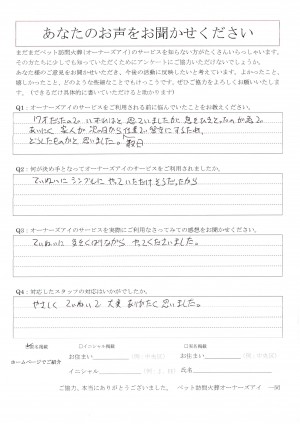 あなたのお声をお聞かせください
まだまだペット訪問火葬(オーナーズアイ)のサービスを知らない方がたくさんいらっしゃいます。
その方たちに少しでも知っていただくためにアンケートにご協力いただけないでしょうか。
あなた様のご意見をお聞かせいただき、今後の活動に反映したいと考えています。よかったこと、
嬉しかったこと、どのような些細なことでもけっこうです。ぜひご協力をよろしくお願いいたします。
(できるだけ具体的に書いていただけると助かります)
Q1：オーナーズアイのサービスをご利用される前に悩んでいたことをお教えください。
17才だったので、いずれはと思っていましたが 息をひきとったのが急で
どうしたものかと思いました。
数日
Q2：何が決め手となってオーナーズアイのサービスをご利用されましたか。
ていねいに シンプルに やっていただけそうだったから
Q3：オーナーズアイのサービスを実際にご利用なさってみての感想をお聞かせください。
ていねいに やってくださいました。
Q4：対応したスタッフの対応はいかがでしたか。
やさしく ていねいで 大変 ありがたく 思いました。
匿名掲載
□イニシャル掲載
□実名掲載
ホームページでご紹介
お住まい
(例：中央区)
お住まい
(例：中央区)
イニシャル
氏名
ご協力、本当にありがとうございました。 ペット訪問火葬オーナーズアイ ―50